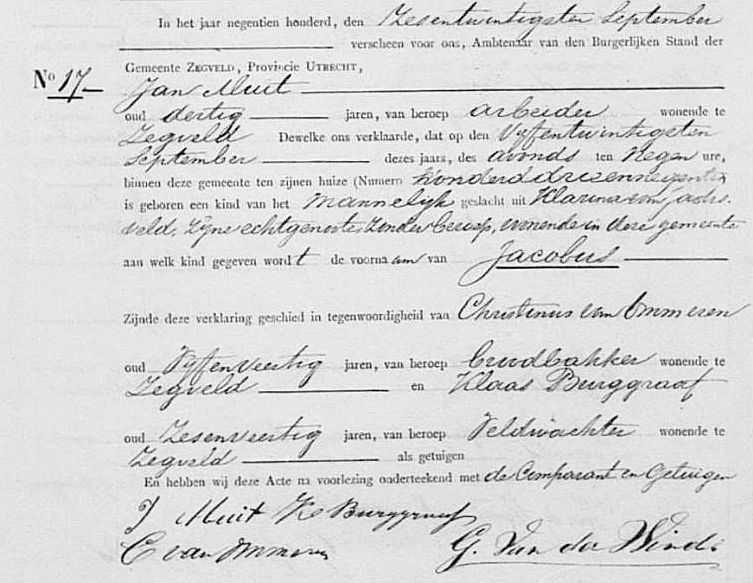 In het jaar negentien honderd, den Zesentwintigsten September
verscheen voor ons, Ambtenaar van den Burgerlijken Stand der
Gemeente ZEGVELD, Provincie UTRECHT,
No 17
Jan Muit
oud dertig jaren, van beroep arbeider wonende te
Zegveld Dewelke ons verklaarde, dat op den Vyfentwintigsten
September dezes jaars, des avonds ten negen ure,
binnen deze gemeente ten zijnen huize (Numero honderd drieennegentig
is geboren een kind van het Mannelijk geslacht uit Klarina van
veld, Zyne echtgenoote, Zonder beroep, wonende in deze gemeente
aan welk kind gegeven wordt de voornaam van Jacobus
Zijnde deze verklaring geschied in tegenwoordigheid van Christinus van Ommeren
oud Vyfenveertig jaren, van beroep broodbakker wonende te
Zegveld en Klaas Burggraaf
oud Zesenveertig jaren, van beroep Veldwachter wonende te
Zegveld als getuigen
En hebben wij deze Acte na voorlezing onderteekend met de Comparant en Getuigen
J Muit K Burggraaf
C van Ommeren G. Van der Wind